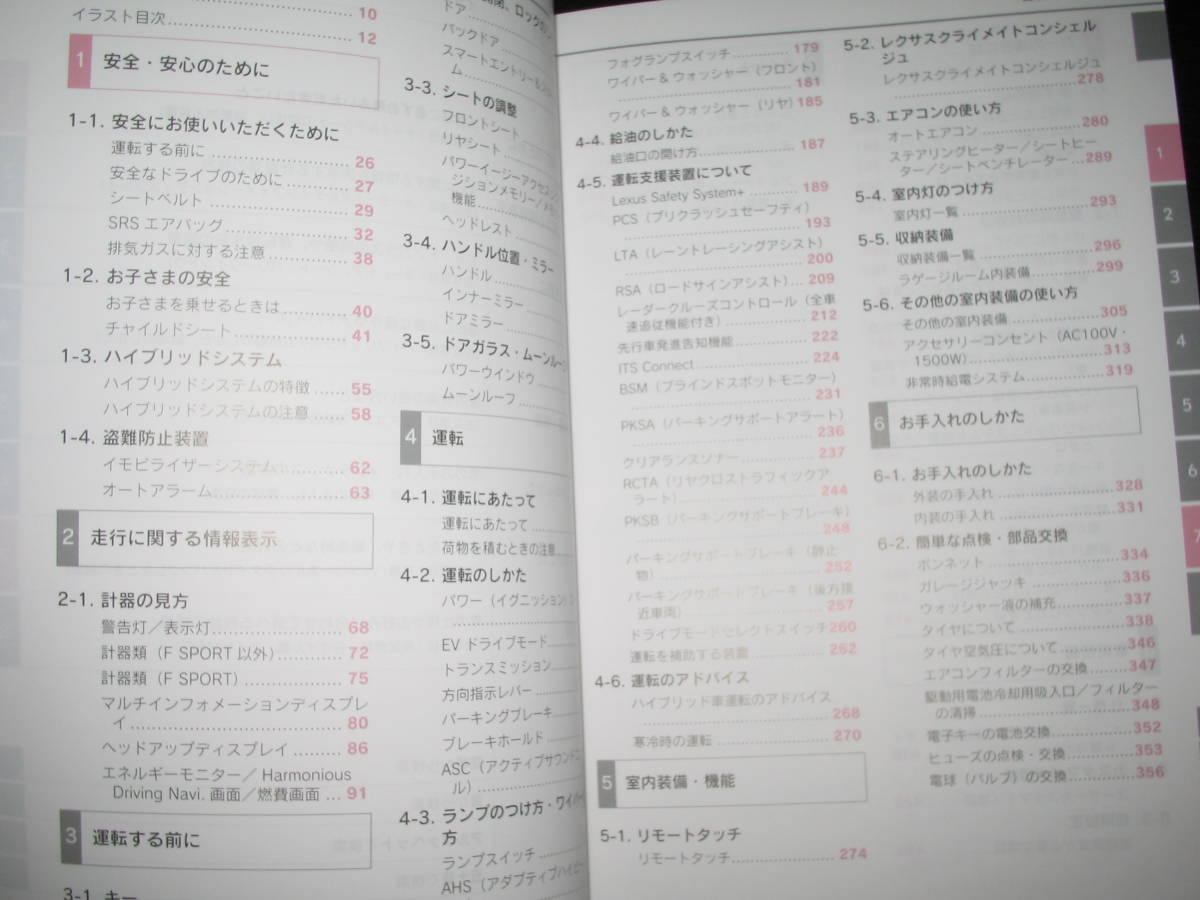 10
イラスト目次 12
1 安全・安心のために
1-1. 安全にお使いいただくために
運転する前に 26
安全なドライブのために 27
シートベルト 29
SRS エアバッグ 32
排気ガスに対する注意 38
1-2. お子さまの安全
お子さまを乗せるときは 40
チャイルドシート 41
1-3. ハイブリッドシステム
ハイブリッドシステムの特徴 55
ハイブリッドシステムの注意 58
1-4. 盗難防止装置
イモビライザーシステム 62
オートアラーム 63
2 走行に関する情報表示
2-1. 計器の見方
警告灯／表示灯 68
計器類（F SPORT 以外） 72
計器類（F SPORT） 75
マルチインフォメーションディスプレ
イ 80
ヘッドアップディスプレイ 86
エネルギーモニター／ Harmonious
Driving Navi. 画面／燃費画面 91
3 運転する前に
3-1. キー
ドア
バックドア
スマートエントリー＆
ム
3-3. シートの調整
フロントシート
リヤシート
パワーイージーアクセス
ジションメモリー／
機能
ヘッドレスト
3-4. ハンドル位置・ミラー
ハンドル
インナーミラー
ドアミラー
3-5. ドアガラス・ムーンルーフ
パワーウインドウ
ムーンルーフ
4 運転
4-1. 運転にあたって
運転にあたって
荷物を積むときの注意
4-2. 運転のしかた
パワー（イグニッション）
EV ドライブモード
トランスミッション
方向指示レバー
パーキングブレーキ
ブレーキホールド
ASC（アクティブサウンドコ
ル）
4-3. ランプのつけ方・ワイパー
方
ランプスイッチ
AHS（アダプティブハイビー
フォグランプスイッチ 179
ワイパー＆ウォッシャー（フロント）
181
ワイパー＆ウォッシャー（リヤ） 185
4-4. 給油のしかた
給油口の開け方 187
4-5. 運転支援装置について
Lexus Safety System+ 189
PCS（プリクラッシュセーフティ）
193
LTA（レーントレーシングアシスト）
200
RSA（ロードサインアシスト） 209
レーダークルーズコントロール（全車
速追従機能付き） 212
先行車発進告知機能 222
ITS Connect 224
BSM（ブラインドスポットモニター）
231
PKSA（パーキングサポートアラート）
236
クリアランスソナー 237
RCTA（リヤクロストラフィックア
ラート） 244
PKSB（パーキングサポートブレーキ）
248
パーキングサポートブレーキ（静止
物） 252
パーキングサポートブレーキ（後方接
近車両） 257
ドライブモードセレクトスイッチ 260
運転を補助する装置 262
4-6. 運転のアドバイス
ハイブリッド車運転のアドバイス
268
寒冷時の運転 270
5 室内装備・機能
5-1. リモートタッチ
リモートタッチ 274
5-2. レクサスクライメイトコンシェル
ジュ
レクサスクライメイトコンシェルジュ
278
5-3. エアコンの使い方
オートエアコン 280
ステアリングヒーター／シートヒー
ター／シートベンチレーター 289
5-4. 室内灯のつけ方
室内灯一覧 293
5-5. 収納装備
収納装備一覧 296
ラゲージルーム内装備 299
5-6. その他の室内装備の使い方
その他の室内装備 305
アクセサリーコンセント（AC100V・
1500W） 313
非常時給電システム 319
6 お手入れのしかた
6-1. お手入れのしかた
外装の手入れ 328
内装の手入れ 331
6-2. 簡単な点検・部品交換
ボンネット 334
ガレージジャッキ 336
ウォッシャー液の補充 337
タイヤについて 338
タイヤ空気圧について 346
エアコンフィルターの交換 347
駆動用電池冷却用吸入口／フィルター
の清掃 348
電子キーの電池交換 352
ヒューズの点検・交換 353
電球（バルブ）の交換 356
1
2
3
4
5
6
7